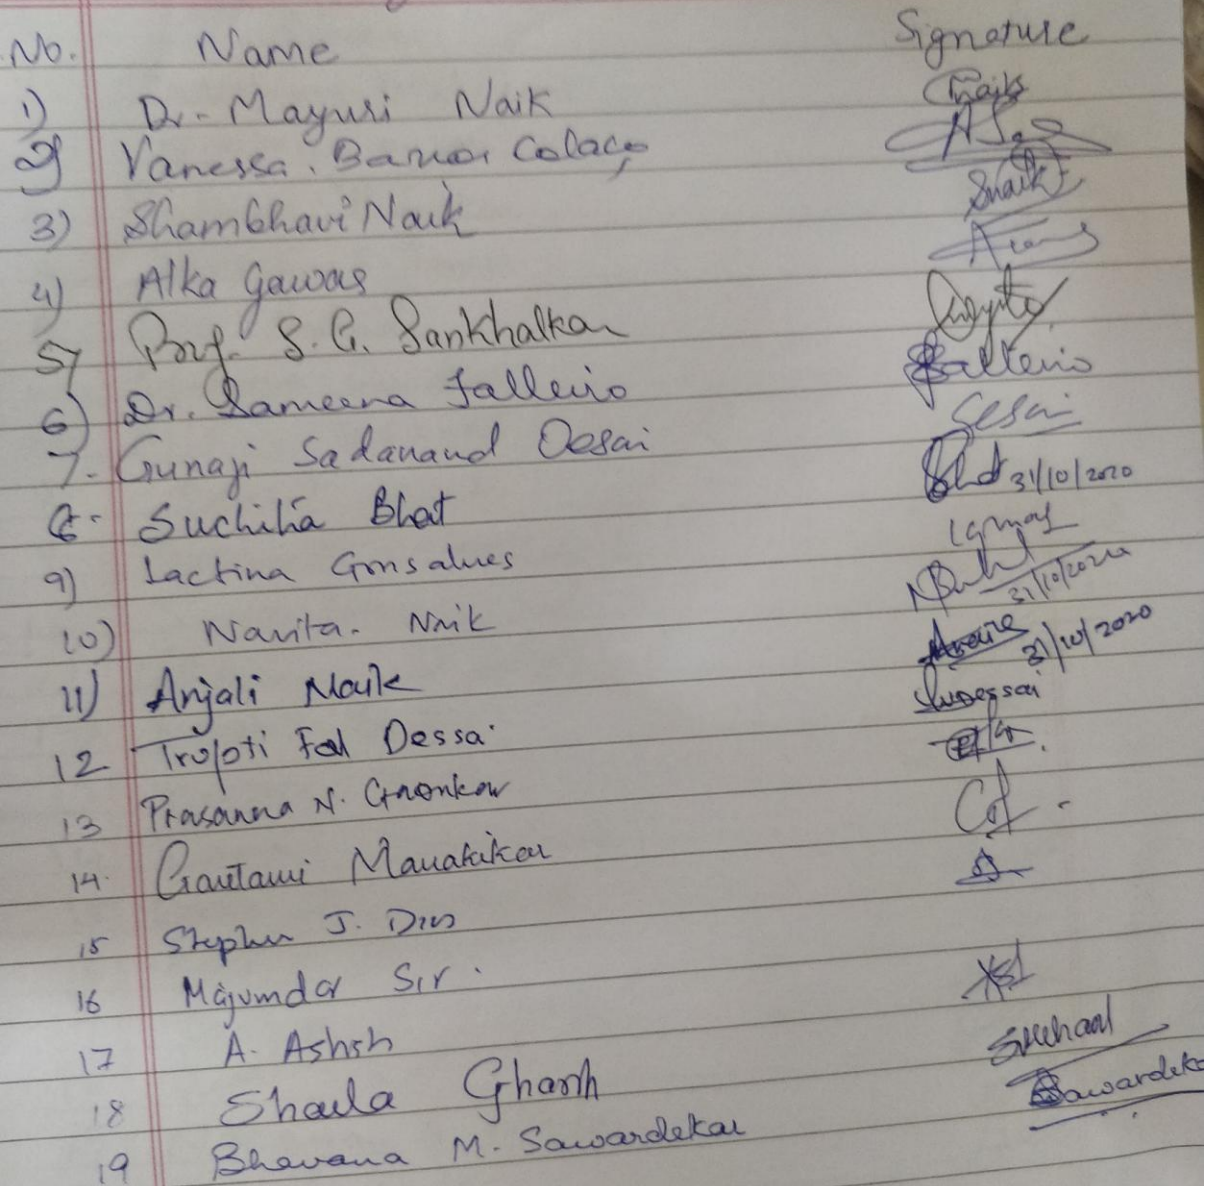 No. Name Signature
1) Dr. Mayuri Naik Naik
2) Vanessa. Barros Colaço
3) Shambhavi Naik SNaik
4) Alka Gawas
5) Prof. S. G. Sankhalkar
6) Dr. Sameena Falleiro Falleiro
7. Gunaji Sadanand Desai Gesai
8. Suchitra Bhat Bhat 31/10/2020
9) Lactina Gonsalves
10) Navita. Naik 31/10/2020
11) Anjali Naik 31/10/2020
12 Trupti Fal Dessai
13 Prasanna N. Gaonkar
14. Gautami Manatikar
15 Stephen J. Dias
16 Majumdar Sir.
17 A. Ashish
18 Shaila Ghanti
19 Bhavana M. Sawardekar Sawardeka